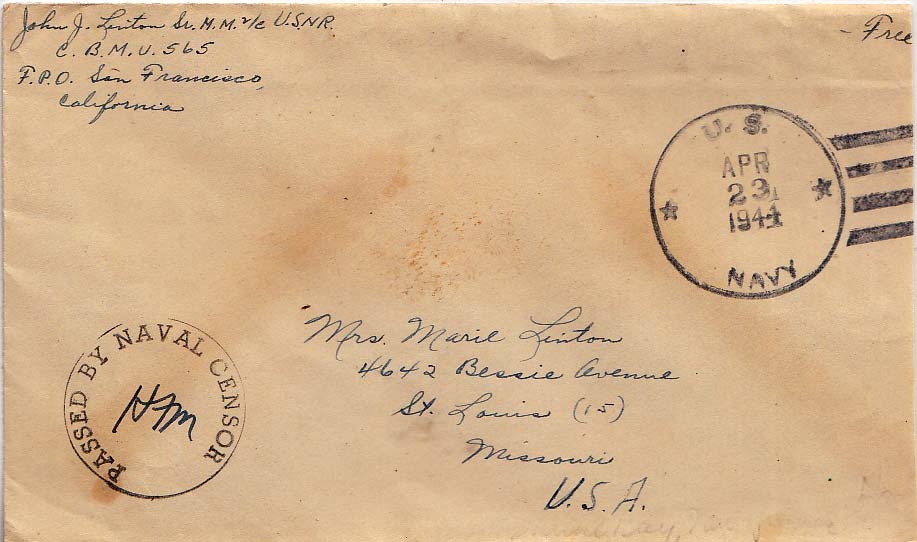 John J. Linton Sr. M.M. 2/c U.S.N.R.
C. B. M. U. 565
F.P.O. San Francisco,
California
- Free
U. S.
APR
23
1944
NAVY
PASSED BY NAVAL CENSOR
Mrs. Marie Linton
4642 Bessie Avenue
St. Louis (15)
Missouri
U.S.A.